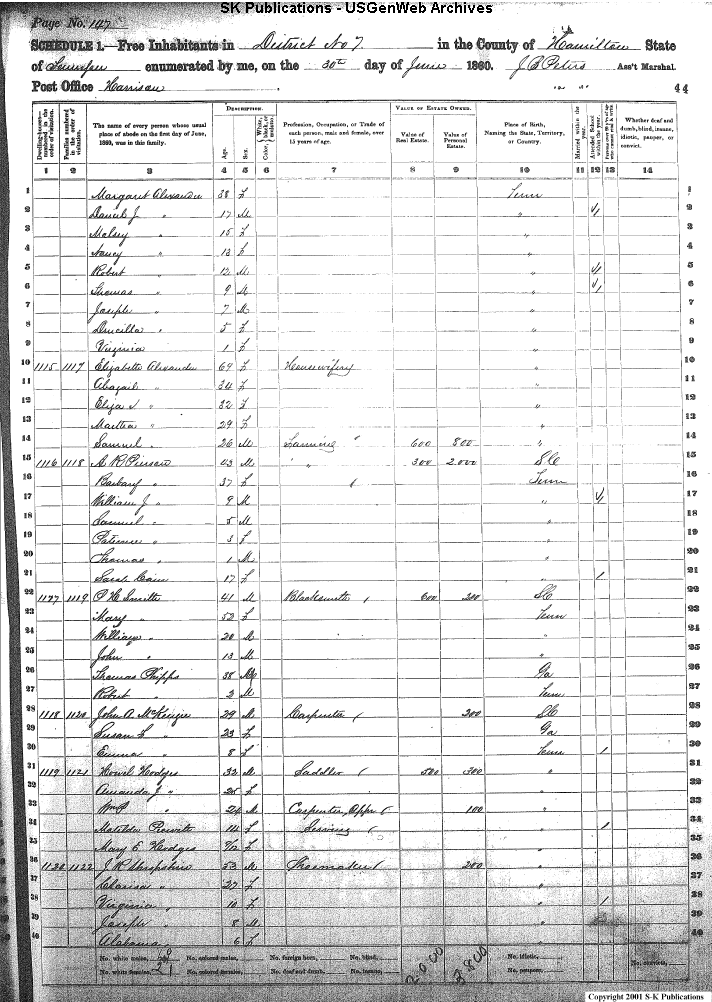 SK Publications - USGenWeb Archives
Page No. 147
SCHEDULE 1.—Free Inhabitants in District No 7 in the County of Hamilton State
of Tennessee enumerated by me, on the 30th day of June 1860. J B Peters Ass't Marshal.
Post Office Harrison 44
Dwelling-houses—numbered in the order of visitation.
Families numbered in the order of visitation.
The name of every person whose usual place of abode on the first day of June, 1860, was in this family.
DESCRIPTION.
Age.
Sex.
Color, White, black, or mulatto.
Profession, Occupation, or Trade of each person, male and female, over 15 years of age.
VALUE OF ESTATE OWNED.
Value of Real Estate.
Value of Personal Estate.
Place of Birth, Naming the State, Territory, or Country.
Married within the year.
Attended School within the year.
Whether deaf and dumb, blind, insane, idiotic, pauper, or convict.
1 2 3 4 5 6 7 8 9 10 11 12 13 14
1 Margaret Alexander 38 f Tenn 1
2 Daniel J " 17 M " 2
3 Malsey " 15 f " 3
4 Nancy " 13 f " 4
5 Robert " 12 M " 5
6 Thomas " 9 M " 6
7 Joseph " 7 M " 7
8 Drucilla " 5 f " 8
9 Virginia 1 f " 9
10 1115 1117 Elizabeth Alexander 69 f Housewifery " 10
11 Abagail " 34 f " 11
12 Eliza " 32 f " 12
13 Martha " 29 f " 13
14 Samuel " 26 M Farming " 600 800 " 14
15 1116 1118 A R Pierson 43 M " " 300 2.000 SC 15
16 Barbary " 37 f Tenn 16
17 William J " 9 M " 17
18 Samuel " 5 M " 18
19 Patience " 3 f " 19
20 Thomas " 1 M " 20
21 Sarah Cain 17 f " 1 21
22 1119 P H Smith 41 M Blacksmith 600 200 SC 22
23 Mary " 52 f Tenn 23
24 William " 20 M " 24
25 John " 13 M " 25
26 Thomas Phipps 38 M Ga 26
27 Robert " 2 M Tenn 27
28 1118 1120 John A. McKenzie 29 M Carpenter 200 SC 28
29 Susan L " 23 f Ga 29
30 Emma " 8 f Tenn 1 30
31 1119 1121 Howel Hodges 32 M Saddler 500 300 " 31
32 Amanda J " 25 f " 32
33 Wm P " 24 M Carpenter, Appr 100 " 33
34 Matilda Prewitt 14 f " 1 34
35 Mary E Hodges f " 35
36 1120 1122 J R 53 M Shoemaker 200 " 36
37 Clarissa " 27 f " 37
38 Virginia " 10 f " 1 38
39 Joseph " 8 M " 39
40 Alabama " 6 f " 40
No. white males, No. colored males, No. foreign born, No. blind, No. idiotic, No. convicts,
No. white females, 21 No. colored females, No. deaf and dumb, No. insane, No. paupers,
2000 3800
Copyright 2001 S-K Publications